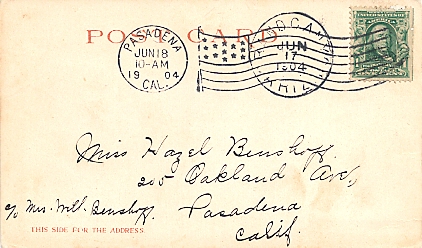 POST CARD
PASADENA
JUN 18
10-AM
19 04
CAL.
JUN
17
1904
Miss Hazel Benshoff,
205 Oakland Ave,
c/o Mrs. Will. Benshoff.
Pasadena
Calif.
THIS SIDE FOR THE ADDRESS.